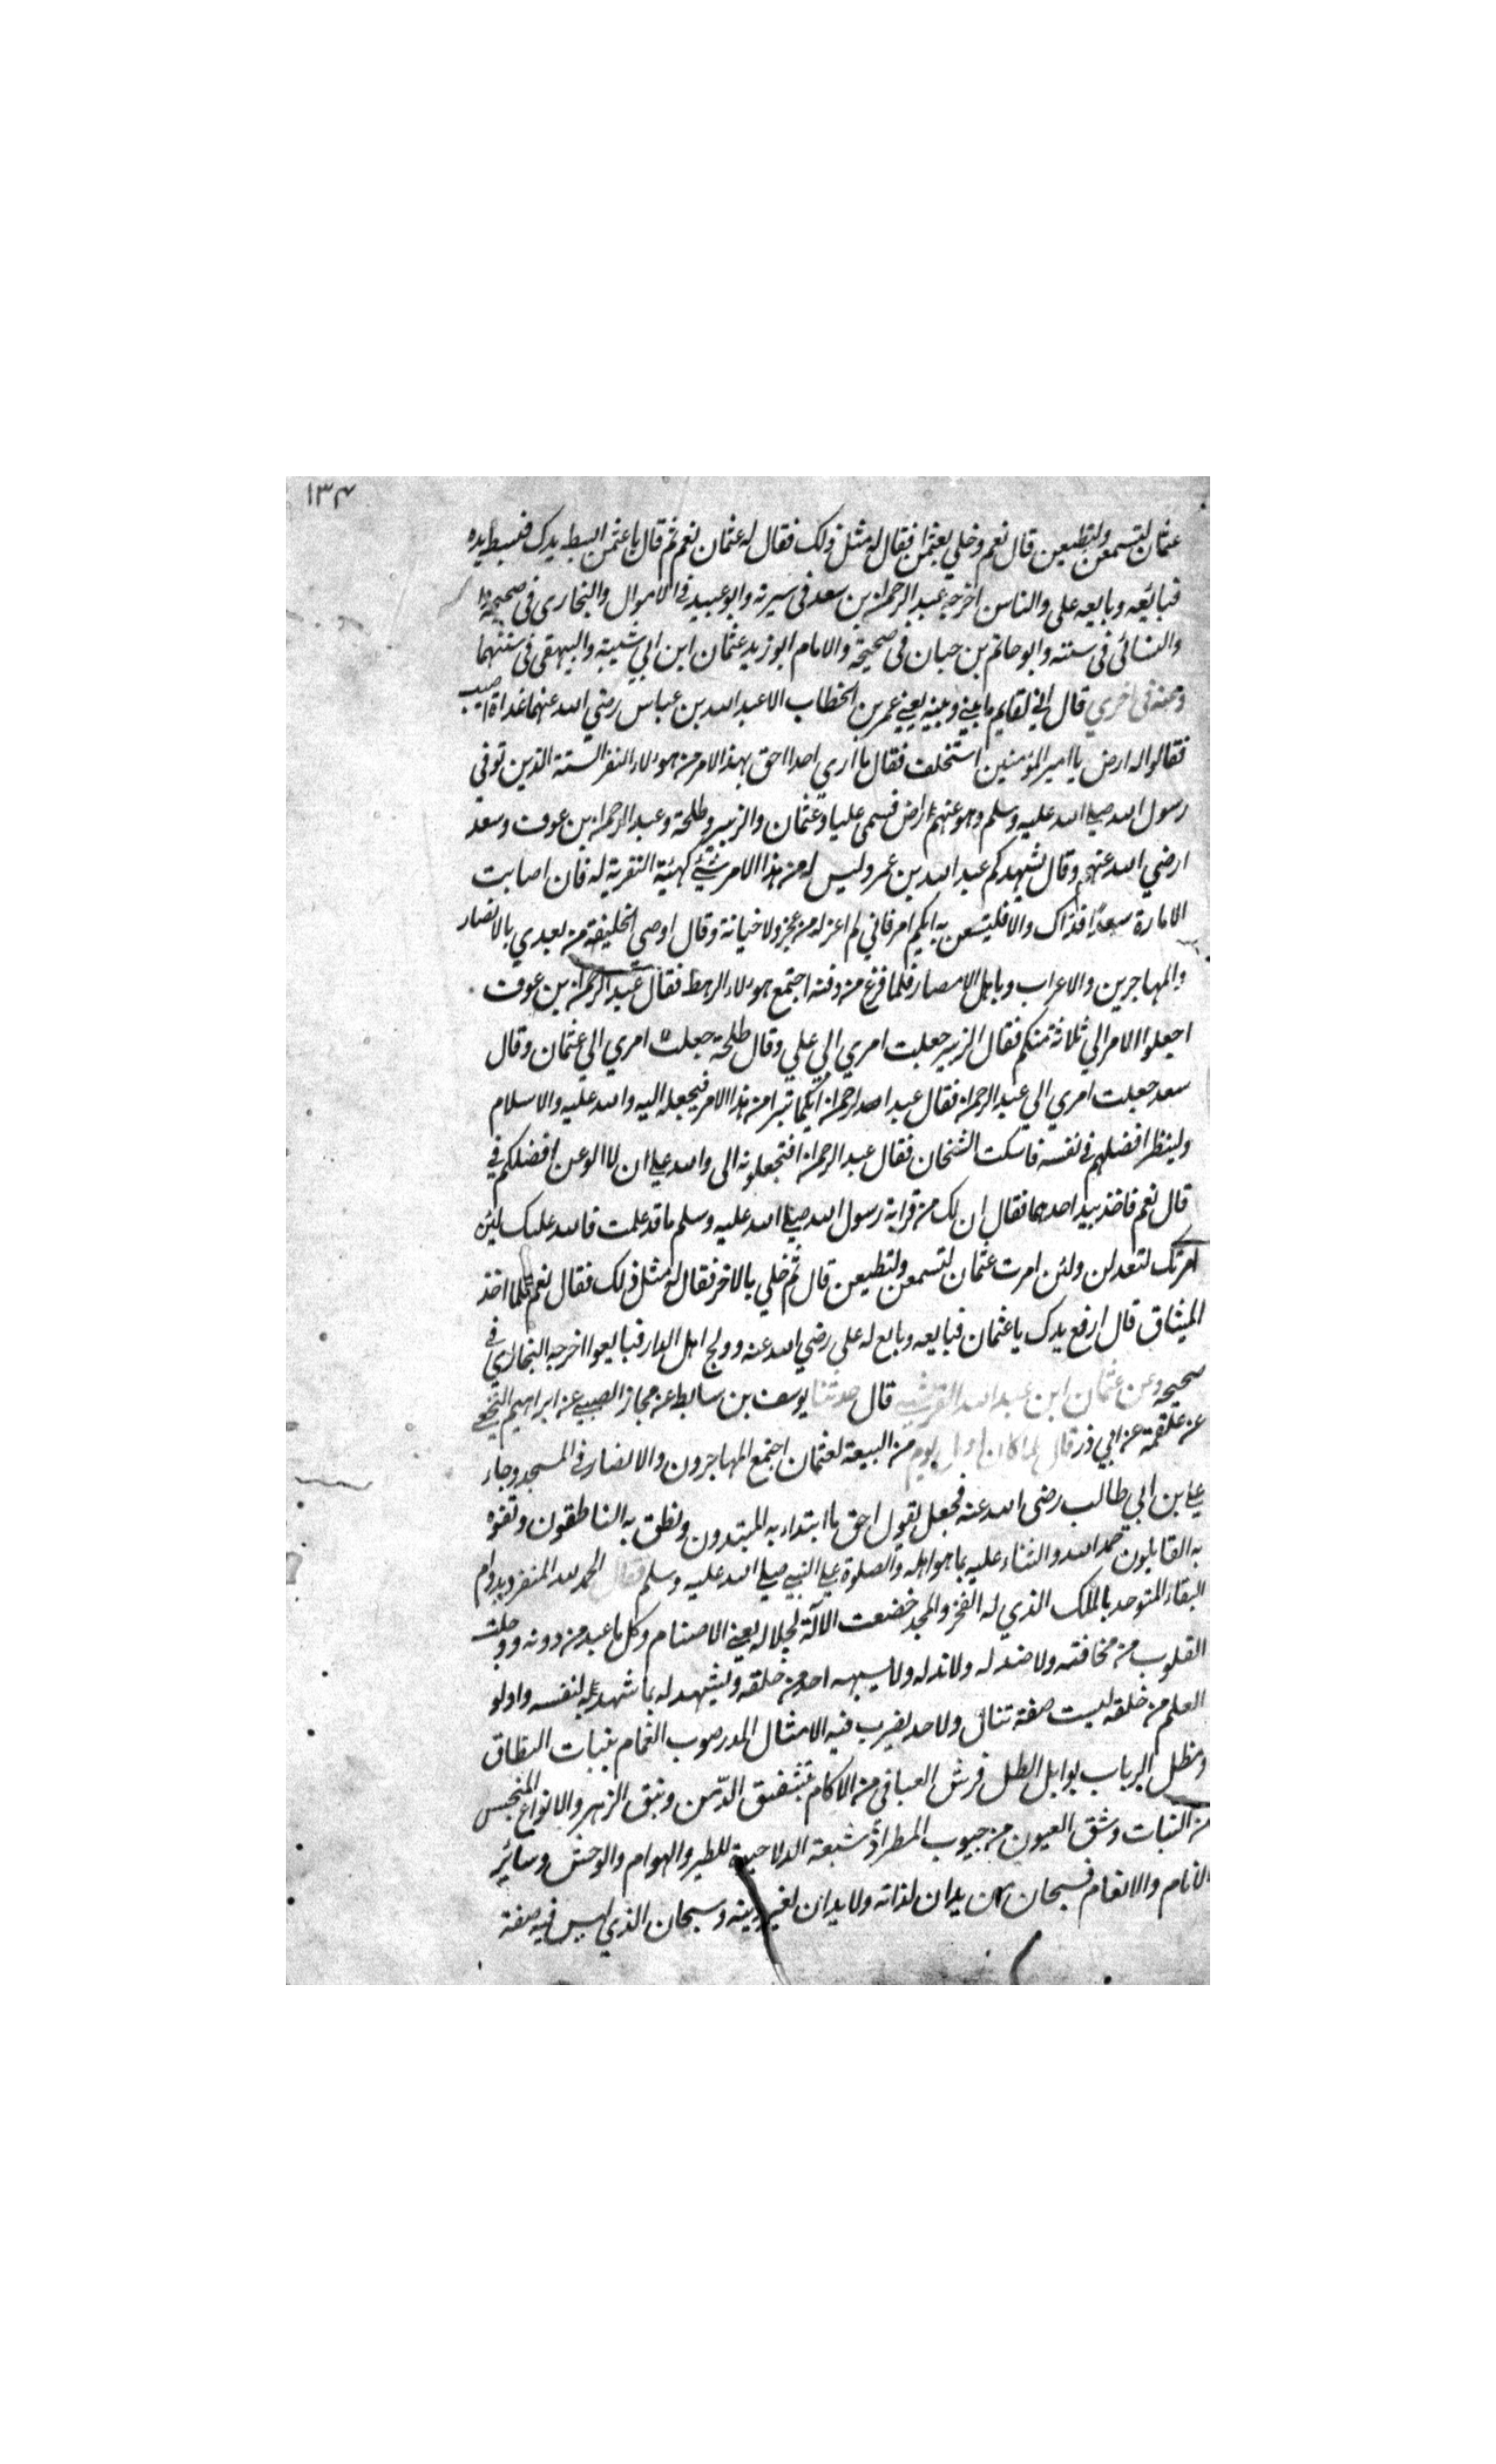 ١٣٤
عثمان لتسمعن ولتطيعن قال نعم وخلي بعثمن فقال له مثل ذلك فقال له عثمان نعم ثم قال يا عثمن ابسط يدك فبسط يده
فبايعه وبايعه علي والناس اخرجه عبد الرحمن بن سعد فى سيرته وابو عبيد فى الاموال والبخارى فى صحيحه
والنسائى فى سننه وابو حاتم بن حبان فى صحيحه والامام ابو زيد عثمان ابن ابي شيبة والبيهقى فى سننهما
وعنه فى اخري قال اني لقايم ما بيني وبينه يعني عمر بن الخطاب الا عبد الله بن عباس رضي الله عنهما غداة اصيب
فقالوا له ارض يا امير المؤمنين استخلف فقال ما اري احدا احق بهذا الامر من هولاء النفر الستة الذين توفي
رسول الله صلي الله عليه وسلم وهو عنهم راض فسمى عليا وعثمان والزبير وطلحة وعبد الرحمن بن عوف وسعد
ارضي الله عنهم وقال يشهدكم عبد الله بن عمر وليس له من هذا الامر شيئ كهيئة التعزية له فان اصابت
الامارة سعدًا فذاك والا فليستعن به ايكم امر فاني لم اعزله من عجز ولا خيانة وقال اوصي الخليفة من بعدي بالانصار
والمهاجرين والاعراب وباهل الامصار فلما فرغ من دفنه اجتمع هولاء الرهط فقال عبد الرحمن بن عوف
اجعلوا الامر الي ثلاثة منكم فقال الزبير جعلت امري الي علي وقال طلحة جعلت امري الي عثمان وقال
سعد جعلت امري الي عبد الرحمن فقال عبد الرحمن ايكما تبرا من هذا الامر فيجعله اليه والله عليه والاسلام
ولينظر افضلهم فى نفسه فاسكت الشخان فقال عبد الرحمن افتجعلونه الى والله علي ان لا الو عن افضلكم في
قال نعم فاخذ بيد احدهما فقال ان لك من قرابة رسول الله صلي الله عليه وسلم ما قد علمت فالله عليك لين
امرتك لتعدلن ولئن امرت عثمان لتسمعن ولتطيعن قال ثم خلي بالاخر فقال له مثل ذلك فقال نعم فلما اخذ
الميثاق قال ارفع يدك يا عثمان فبايعه وبايع له علي رضي الله عنه وولج اهل الدار فبايعوا اخرجه البخاري في
صحيحه وعن عثمان ابن عبد الله القرشي قال حدثنا يوسف بن سابط عن مجاز الصبي عن ابراهيم النخعي
عن علقمة عن ابي ذر قال لما كان اول يوم من البيعة لعثمان اجتمع المهاجرون والانصار فى المسجد وجاء
علي بن ابي طالب رضى الله عنه فجعل يقول احق ما ابتداء به المبتدون ونطق به الناطقون وتفوه
به القايلون حمد الله والثناء عليه بما هو اهله والصلوة علي النبي صلي الله عليه وسلم فقال الحمد لله المنفرد بدوام
البقاء المتوحد بالملك الذي له الفخر والمجد خضعت الآلة لجلاله يعني الاصنام وكل ما عبد من دونه ووجلت
القلوب من مخافته ولا ضد له ولا ند له ولا يسبهه احد من خلقه ويشهد له بما شهد به لنفسه واولو
العلم من خلقه ليست صفة تنال ولا حد يضرب فيه الامثال المدر صوب الغمام بنبات النطاق
ومظل الرباب بوابل الطل فرش العيافى من الاكام بتشقيق الدّمن ونبق الزهر والانواع المنجس
من النبات وشق العيون من جيوب المطر اذ شبعة الدلا حيوة للطير والهوام والوحش وسائر
الانام والانعام فسبحان من يدان لذاته ولا يدان لغير دينه وسبحان الذي ليس فيه صفة